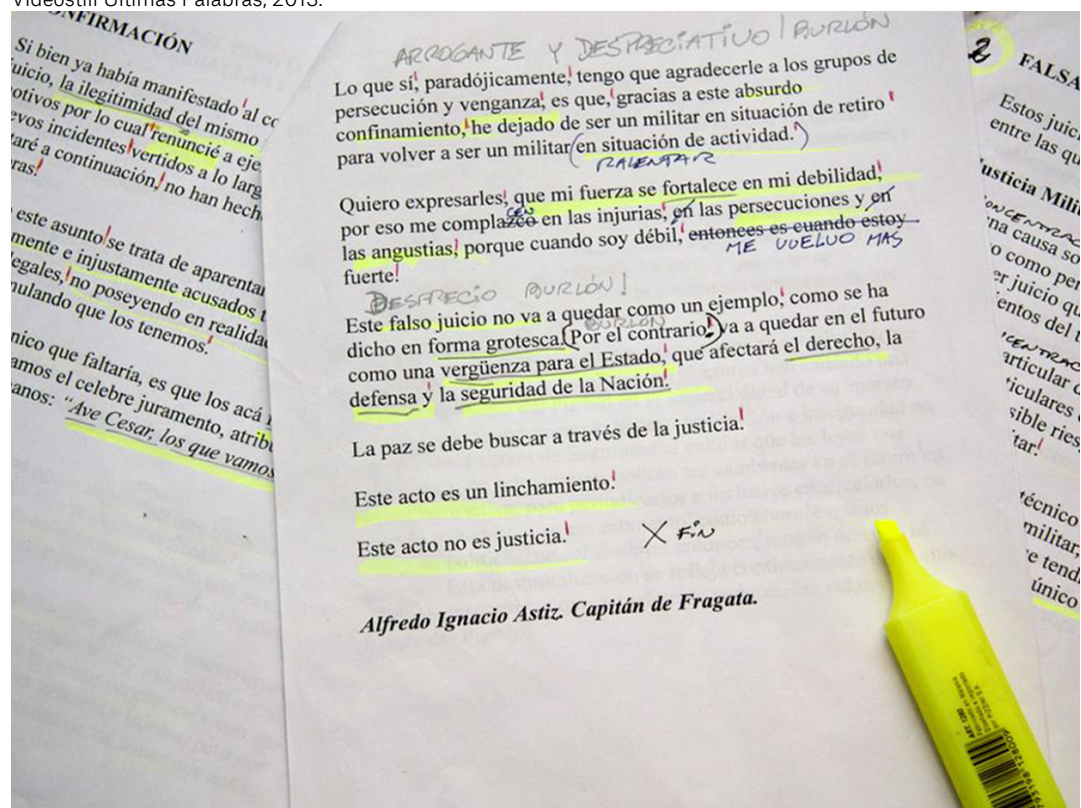 Videostill Últimas Palabras, 2015.
ONFIRMACIÓN
Si bien ya había manifestado al
juicio, la ilegitimidad del mismo
otivos por lo cual renuncié a eje
evos incidentes vertidos a lo larg
aré a continuación, no han hech
ras!
este asunto se trata de aparentar
mente e injustamente acusados
egales, no poseyendo en realida
ulando que los tenemos.
nico que faltaría, es que los acá
amos el celebre juramento, atrib
anos: "Ave Cesar, los que vamos
ARROGANTE Y DESPRECIATIVO / BURLÓN
Lo que sí, paradójicamente, tengo que agradecerle a los grupos de
persecución y venganza, es que, gracias a este absurdo
confinamiento, he dejado de ser un militar en situación de retiro
para volver a ser un militar (en situación de actividad.)
RALENTAR
Quiero expresarles, que mi fuerza se fortalece en mi debilidad,
CEN
por eso me complazco en las injurias, en las persecuciones y en
las angustias, porque cuando soy débil, entonces es cuando estoy
ME VUELVO MAS
fuerte!
DESPRECIO BURLÓN!
Este falso juicio no va a quedar como un ejemplo, como se ha
BURLÓN
dicho en forma grotesca. (Por el contrario,) va a quedar en el futuro
como una vergüenza para el Estado, que afectará el derecho, la
defensa y la seguridad de la Nación.
La paz se debe buscar a través de la justicia.
Este acto es un linchamiento.
Este acto no es justicia. X FIN
Alfredo Ignacio Astiz. Capitán de Fragata.
2
FALSA
Estos juic
entre las qu
usticia Mili
ONCENTRAC
na causa so
o como per
er juicio qu
entos del t
CENTRAC
articular
iculares
sible ries
tar!
técnico
militar,
e tend
único
ART. 1280